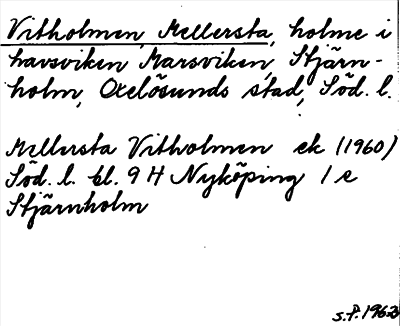 Vitholmen, Mellersta, holme i
havsviken Marsviken, Stjärn-
holm, Oxelösunds stad, Söd. l.
Mellersta Vitholmen ek (1960)
Söd. l. bl. 9 H Nyköping 1 e
Stjärnholm
S.P. 1963